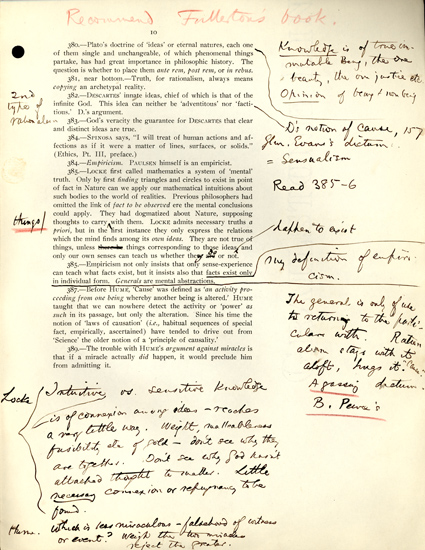 Recommend Fullerton's book.
10
380.—Plato's doctrine of 'ideas' or eternal natures, each one
of them single and unchangeable, of which phenomenal things
partake, has had great importance in philosophic history. The
question is whether to place them ante rem, post rem, or in rebus.
381, near bottom.—Truth, for rationalism, always means
copying an archetypal reality.
382.—DESCARTES' innate ideas, chief of which is that of the
infinite God. This idea can neither be 'adventitous' nor 'facti-
tious.' D.'s argument.
383.—God's veracity the guaranty for DESCARTES that clear
and distinct ideas are true.
384.—SPINOSA says, "I will treat of human actions and af-
fections as if it were a matter of lines, surfaces, or solids."
(Ethics, Pt. III, preface.)
384.—Empiricism. PAULSEN himself is an empiricist.
385.—LOCKE first called mathematics a system of 'mental'
truth. Only by first finding triangles and circles to exist in point
of fact in Nature can we apply our mathematical intuitions about
such bodies to the world of realities. Previous philosophers had
omitted the link of fact to be observed ere the mental conclusions
could apply. They had dogmatized about Nature, supposing
thoughts to carry with them. LOCKE admits necessary truths a
priori, but in the first instance they only express the relations
which the mind finds among its own ideas. They are not true of
things, unless there be things corresponding to those ideas/ and
only our own senses can teach us whether they do or not.
385.—Empiricism not only insists that only sense-experience
can teach what facts exist, but it insists also that facts exist only
in individual form. Generals are mental abstractions.
387.—Before HUME, 'Cause' was defined as 'an activity pro-
ceeding from one being whereby another being is altered.' HUME
taught that we can nowhere detect the activity or 'power' as
such in its passage, but only the alteration. Since his time the
notion of 'laws of causation' (i.e., habitual sequences of special
fact, empirically, ascertained) have tended to drive out from
'Science' the older notion of a 'principle of causality.'
389.—The trouble with HUME'S argument against miracles is
that if a miracle actually did happen, it would preclude him
from admitting it.
2nd
type of
rationalism
things/
Knowledge is of true im-
mutable Being, the one
beauty, the one justice etc
Opinion of being & non being
D's notion of Cause, 157
Glen. Evans's dictum
= Sensualism
Read 385-6
happen to exist
my definition of empiri-
cism.
The general is only of use
in returning to the parti-
culars with. Ration-
alism stays with it
aloft, hugs it.
A passing dictum
B. Peirce's
Locke
Intuitive vs. sensitive knowledge
is of connexion among ideas – reaches
a very little way. Weight, malleableness
fusibility etc of gold – don't see why they
are together. Don't see why God hasn't
attached thought to matter. Little
necessary connexion or repugnancy to be
found.
Hume.
Which is less miraculous – falsehood of witness
or event? Weigh the two miracles
reject the greater.